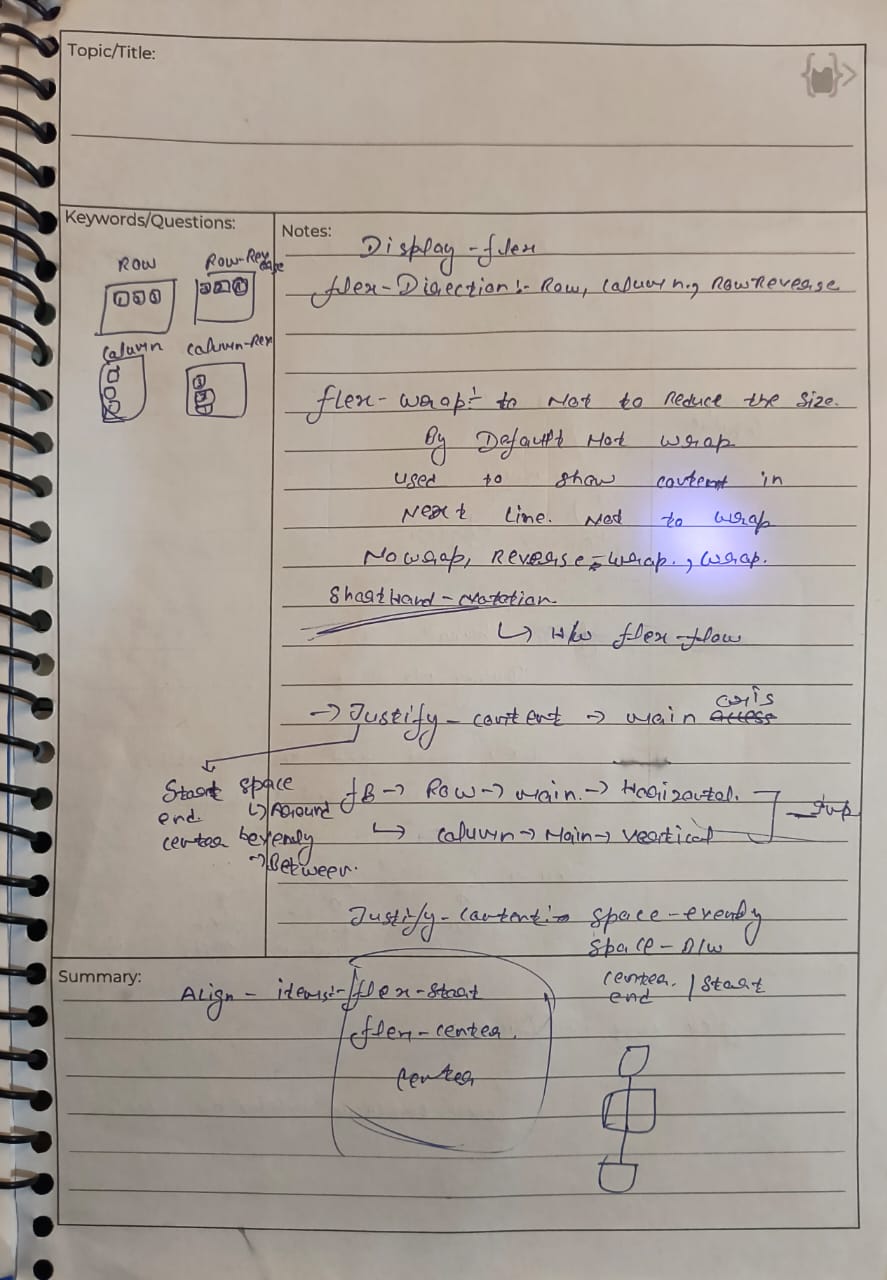 Topic/Title:
Keywords/Questions:
Row
Row-Rev
erse
1 2 3
3 2 1
Caluwn
Caluwn-Rev
Notes:
Display-flex
flex-Direction:- Row, Caluwn, RowReverse
flex-wrap:- to Not to Reduce the Size.
By Default Not wrap
used to show content in
Next Line. Not to wrap
Nowrap, Reverse-wrap., wrap.
ShortHand-notation.
↳ H/w flex-flow
→ Justify-content → main axis
Start space
end. ↳ Around
center evenly
→ Between.
fB → Row → main. → Horizontal.
↳ Caluwn → Main → vertical
Imp
Justify-content:- space-evenly
space-B/w
center. / Start
end
Summary:
Align-items:- flex-start
flex-center.
center